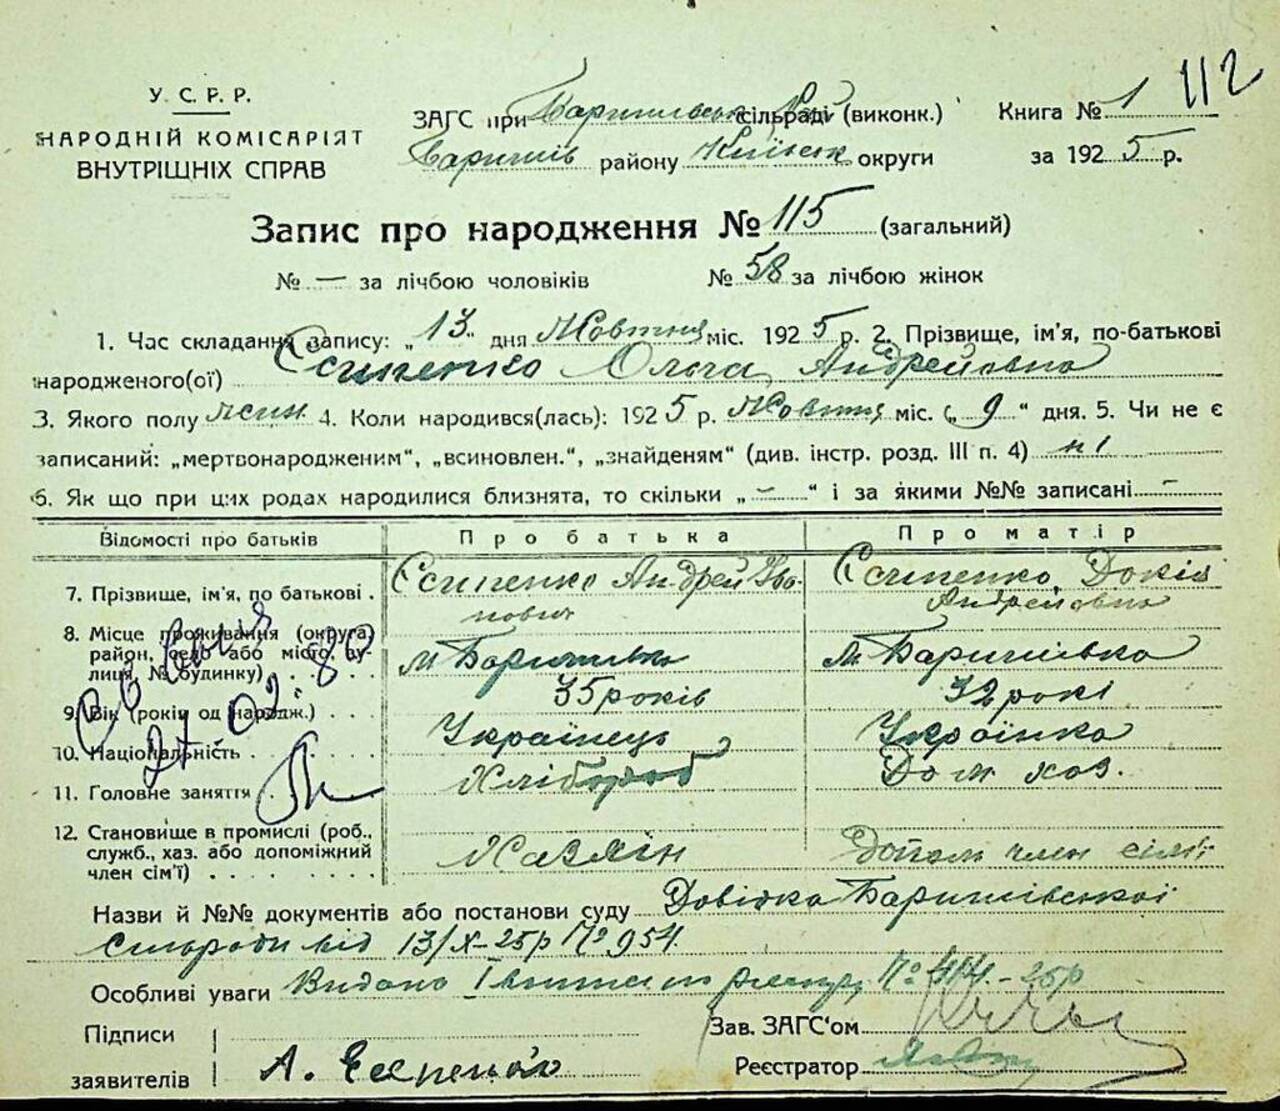 112
У. С. Р. Р.
НАРОДНІЙ КОМІСАРІЯТ
ВНУТРІШНІХ СПРАВ
ЗАГС при сільраді (виконк.) Книга № 1
Баришів району Київськ округи за 1925 р.
Запис про народження № 115 (загальний)
№ — за лічбою чоловіків № 58 за лічбою жінок
1. Час складання запису: „13" дня Жовтня міс. 1925 р. 2. Прізвище, ім'я, по-батькові
народженого(ої) Єсипенко Ольга Андрейовна
3. Якого полу жін. 4. Коли народився(лась): 1925 р. Жовтня міс. („9" дня. 5. Чи не є
записаний: „мертвонародженим", „всиновлен.", „знайденям" (див. інстр. розд. III п. 4) ні
6. Як що при цих родах народилися близнята, то скільки „–" і за якими №№ записані –
Відомості про батьків Про батька Про матір
7. Прізвище, ім'я, по батькові . Єсипенко Андрей Іванович Єсипенко Докія Андрейовна
8. Місце проживання (округа, район, село або місто, вулиця, № будинку) м Баришівка м. Баришівка
9. Вік (років од народж.) . . . 35 років 32 рокі
10. Національність Українець Українка
11. Головне заняття . Хлібороб Дом. хоз.
12. Становище в промислі (роб., служб., хаз. або допоміжний член сім'ї) Хазяїн допом член сімї
Назви й №№ документів або постанови суду Довідка Баришівської
Сільради від 13/X–25р № 954.
Особливі уваги Видано
27 02. 80
Підписи Зав. ЗАГС'ом
заявителів А. Єсипенко Реєстратор